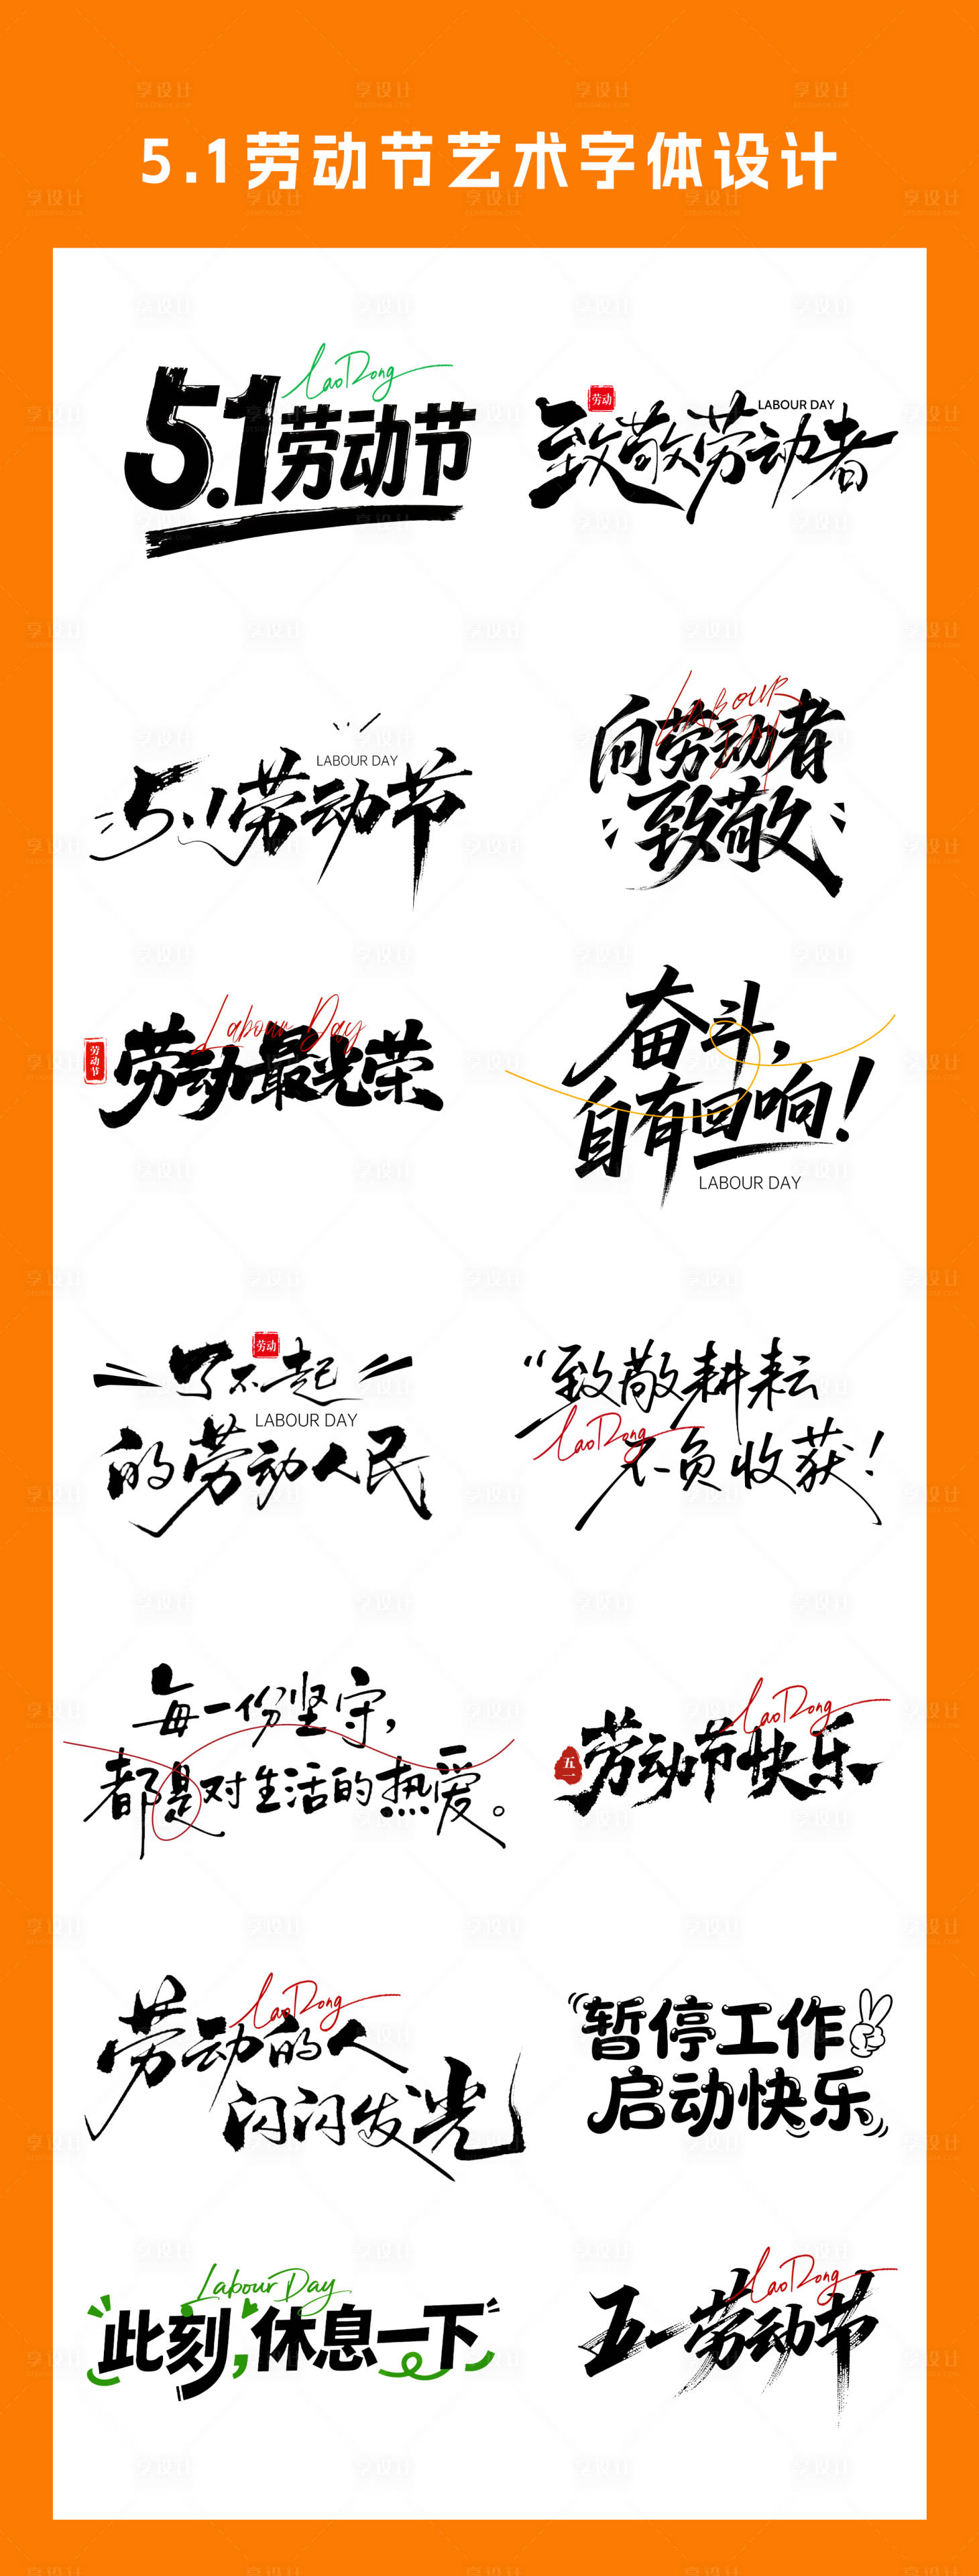 5.1劳动节艺术字体设计
LaoDong
5.1劳动节
劳动
LABOUR DAY
致敬劳动者
LABOUR DAY
5.1劳动节
LABOUR
DAY
向劳动者
致敬
Labour Day
劳动节
劳动最光荣
奋斗，
自有回响！
LABOUR DAY
劳动
了不起
LABOUR DAY
的劳动人民
“致敬耕耘
LaoDong
不负收获！
每一份坚守，
都是对生活的热爱。
LaoDong
五一
劳动节快乐
LaoDong
劳动的人
闪闪发光
暂停工作
启动快乐
Labour Day
此刻，休息一下
LaoDong
五一劳动节
享设计